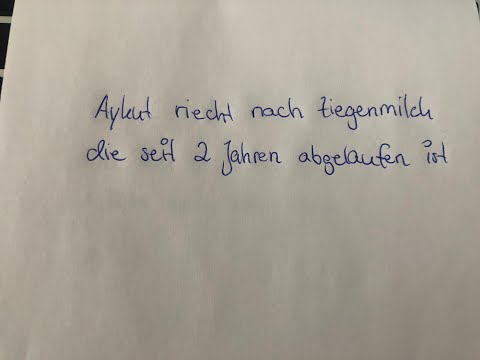 Aykut riecht nach Ziegenmilch
die seit 2 Jahren abgelaufen ist